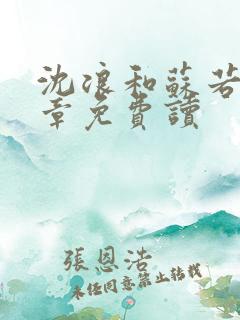 沈浪和蘇若
章免費讀
張恩浩
未经同意禁止转载